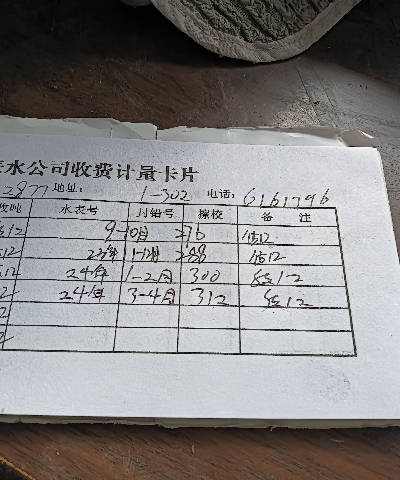 水公司收费计量卡片
2877 地址: 1-302 电话: 6161796
水表号 封铅号 擦校 备 注
12 9-10月 276 结12
12 23年 11-12月 288 结12
12 24年 1-2月 300 结12
2 24年 3-4月 312 结12
2
2